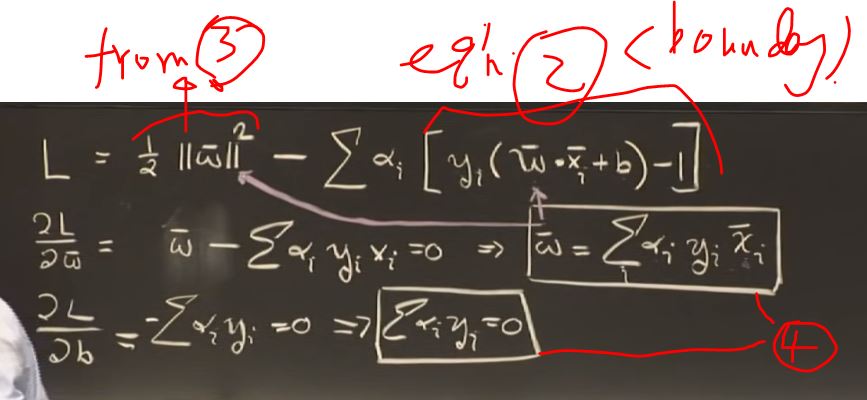 from ③ eq'n. ② (boundary)
L = ½ ||w̄||² − ∑ αᵢ [yᵢ(w̄·x̄ᵢ + b) − 1]
∂L/∂w̄ = w̄ − ∑ αᵢ yᵢ xᵢ = 0 ⇒ w̄ = ∑ᵢ αᵢ yᵢ x̄ᵢ
∂L/∂b = −∑ αᵢ yᵢ = 0 ⇒ ∑ αᵢ yᵢ = 0
④